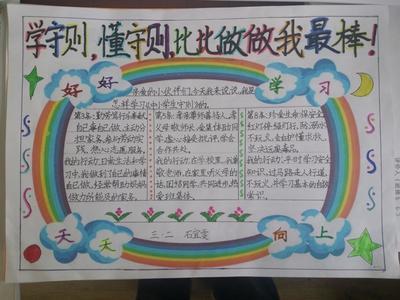 学守则,懂守则,比比做做我最棒!
好好
学习
亲爱的小伙伴们今天我来说说,我是
怎样学习《中小学生守则》的。
第3条:勤劳笃行乐奉献
自己事自己做,主动分
担家务,参与劳动实
践,热心志愿服务。
我的行动:日常生活和学
习中,我做到了自己的事情
自己做,经常帮助妈妈
做力所能及的家务。
第5条:孝亲尊师善待人,孝
父母敬师长,爱集体助同
学,虚心接受批评,学会
合作共处。
我的行动:在学校里,我尊
敬老师,在家里
团结同学,共同进步,热
爱班集体。
第8条:珍爱生命保安全
红灯停绿灯行,防溺水
不玩火,会自护懂求救,
坚决远离毒品。
我的行动:平时学习安全
知识,过马路走人行道,
不玩火,并学习基本的自救
常识。
天天
向上
三·二 石宜雯